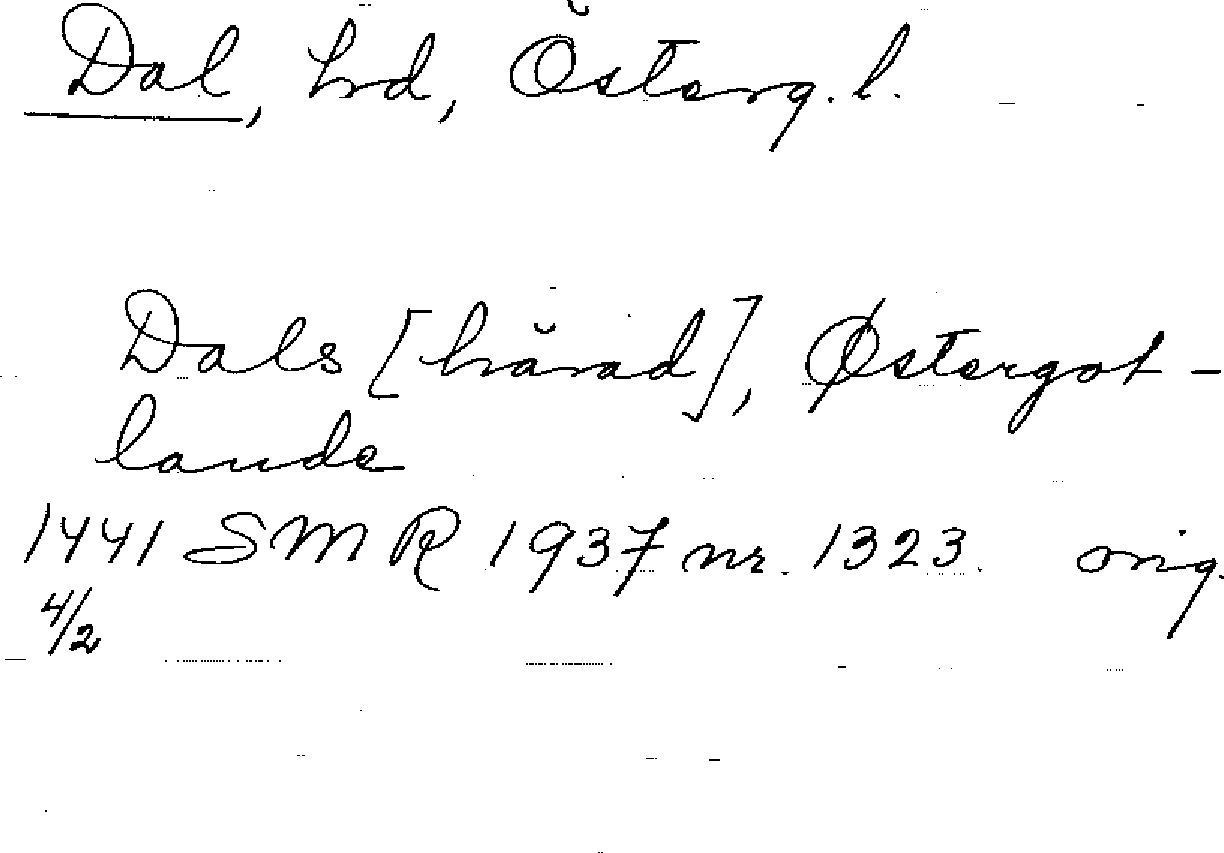 Dal, hd, Österg. l.
Dals [härad], Østergot-
lande
1441 SMR 1937 nr. 1323. orig.
4/2